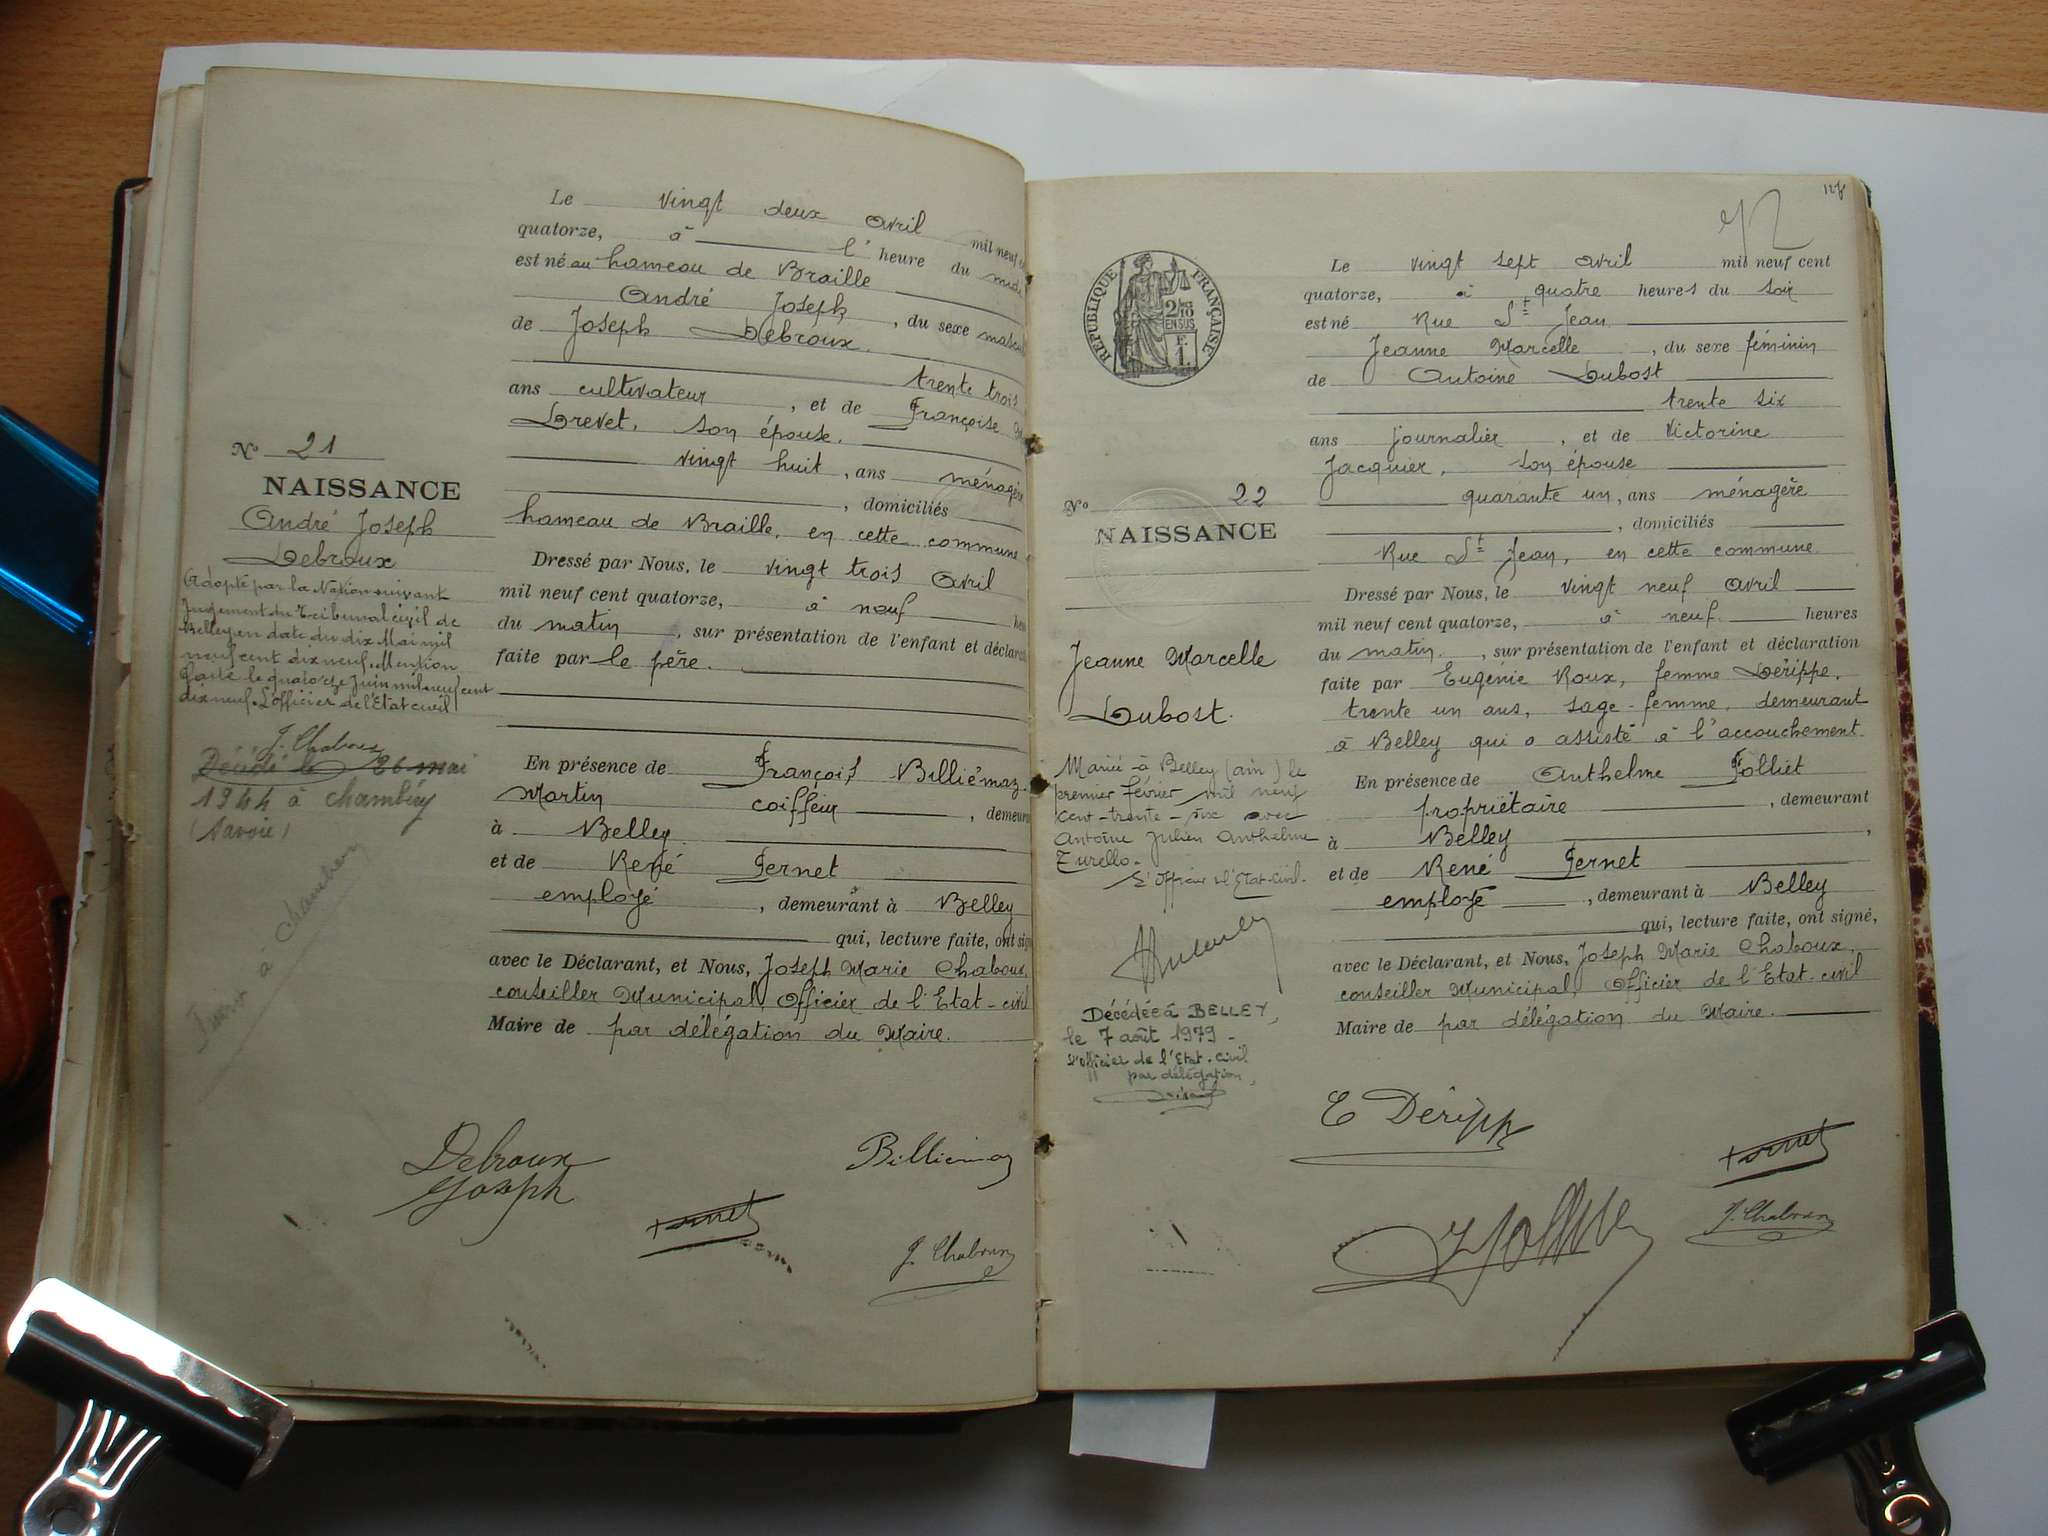 Le vingt deux avril mil neuf
quatorze, à l' heure du midi
est né au hameau de Braille
André Joseph, du sexe mascul
de Joseph Debroux.
trente trois
ans cultivateur, et de Françoise
Drevet, son épouse.
vingt huit, ans ménagère
, domiciliés
hameau de Braille, en cette commune
Dressé par Nous, le vingt trois avril
mil neuf cent quatorze, à neuf heu
du matin, sur présentation de l'enfant et déclarat
faite par le père.
En présence de François Billiémaz
Martin coiffeur, demeura
à Belley
et de René Fernet
employé, demeurant à Belley
qui, lecture faite, ont sign
avec le Déclarant, et Nous, Joseph Marie Chaboux,
conseiller Municipal, Officier de l'Etat-civil
Maire de par délégation du Maire.
Nº 21
NAISSANCE
André Joseph
Debroux
Adopté par la Nation suivant
Jugement du Tribunal civil de
Belley en date du dix Mai mil
neuf cent dix neuf. Mention
faite le quatorze Juin mil neuf cent
dix neuf. L'officier de l'Etat civil
J. Chaboux
Décédé le 26 mai
1944 à Chambéry
(Savoie)
Debroux
Joseph
Billiemaz
Fernet
J. Chaboux
127
Le vingt sept avril mil neuf cent
quatorze, à quatre heures du soir
est né Rue St Jean
Jeanne Marcelle, du sexe féminin
de Antoine Dubost
trente six
ans journalier, et de Victorine
Jacquier, son épouse
quarante un, ans ménagère
, domiciliés
Rue St Jean, en cette commune
Dressé par Nous, le vingt neuf avril
mil neuf cent quatorze, à neuf heures
du matin, sur présentation de l'enfant et déclaration
faite par Eugénie Roux, femme Dérippe,
trente un ans, sage-femme, demeurant
à Belley qui a assisté à l'accouchement
En présence de Anthelme Folliet
propriétaire, demeurant
à Belley,
et de René Fernet
employé, demeurant à Belley
qui, lecture faite, ont signé,
avec le Déclarant, et Nous, Joseph Marie Chaboux,
conseiller Municipal, Officier de l'Etat-civil
Maire de par délégation du Maire.
RÉPUBLIQUE FRANÇAISE
2/10
EN SUS
F.
1.
Nº 22
NAISSANCE
Jeanne Marcelle
Dubost.
Mariée à Belley (ain) le
premier février mil neuf
cent-trente-six avec
Antoine Julien Anthelme
Turello.
L'Officier d'Etat-Civil.
Décédée à BELLEY,
le 7 août 1979 -
L'officier de l'Etat-civil
par délégation,
E Deripp
Fernet
J. Chaboux
Folliet